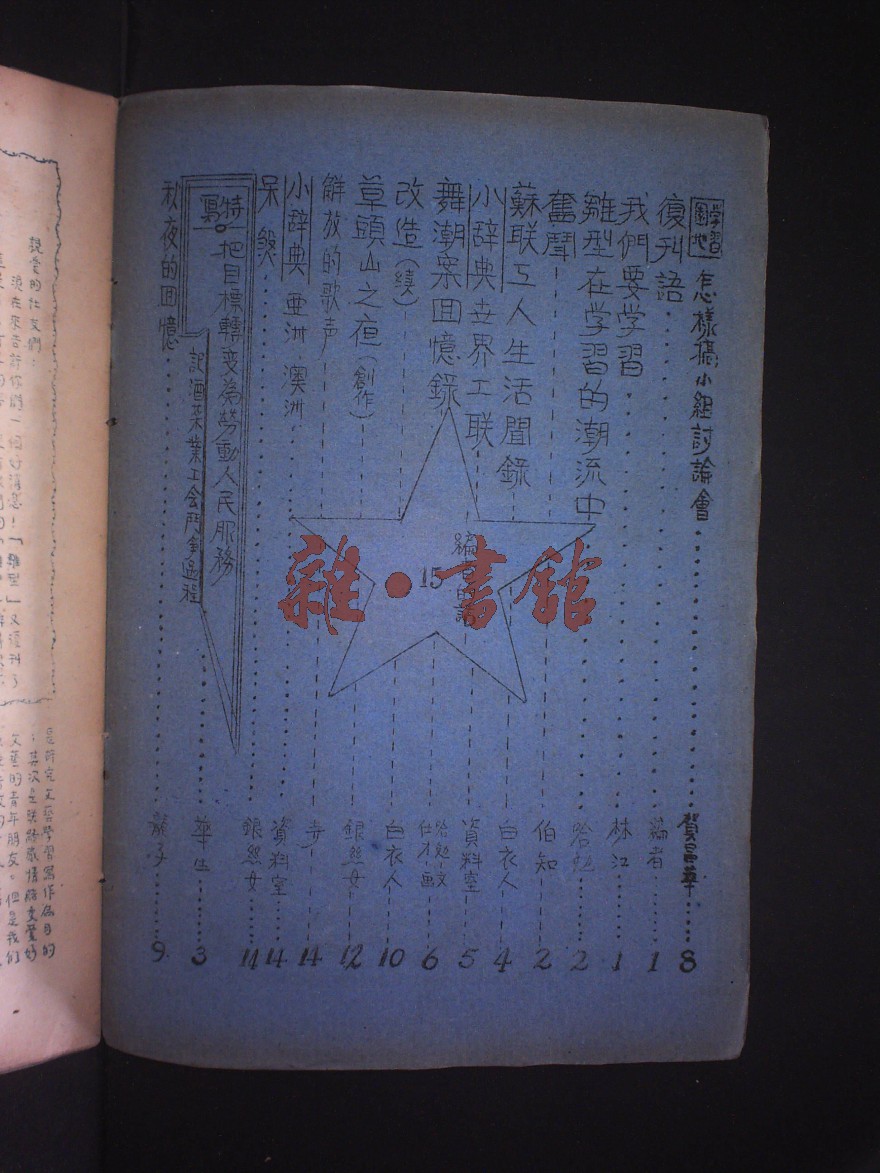 學習園地 怎樣搞小組討論會 賀昌華 8
復刊語 編者 1
我們要學習 林江 1
雛型在学習的潮流中 哈勉 2
奮鬥 伯知 2
蘇联工人生活聞錄 白衣人 4
小辞典 世界工联 資料室 5
舞潮案回憶錄 哈勉文 仕才画 6
改造(续) 白衣人 10
草頭山之夜(創作) 銀丝女 12
解放的歌声 寺 14
小辞典 亜洲 澳洲 資料室 14
呆 銀丝女 11
特寫 把目標轉变為勞動人民服務
記酒菜業工会鬥争過程 華生 3
秋夜的回憶 9
編
15
雜·書館
親爱的社友們:
現在來告訴你們一個好消息!「雛型」又復刊了
是研究文藝學習寫作為目的
文藝的青年朋友。但是我们